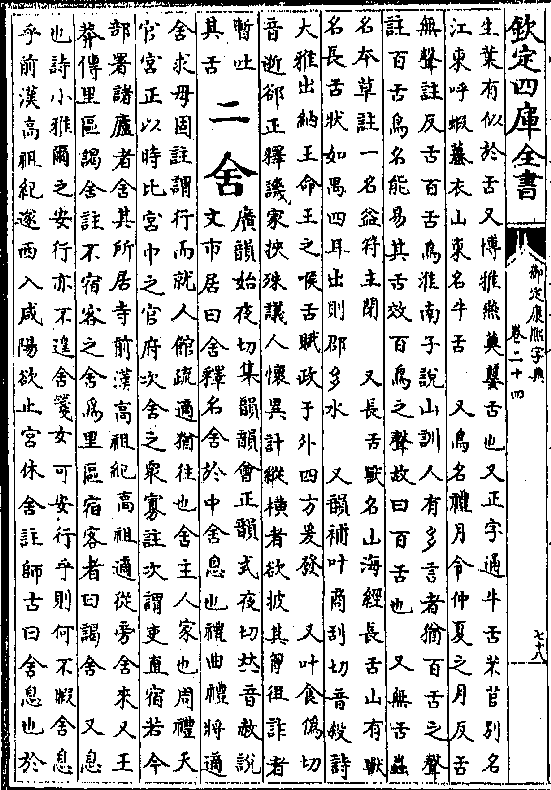 欽定四庫全書
御定康熙字典
卷二十四
七十八
生葉有似於舌又博雅燕薁蘡舌也又正字通牛舌芣苢别名
江東呼蝦蟇衣山東名牛舌　又鳥名禮月令仲夏之月反舌
無聲註反舌百舌鳥淮南子說山訓人有多言者猶百舌之聲
註百舌鳥名能易其舌效百鳥之聲故曰百舌也　又無舌蟲
名本草註一名益符主閉　又長舌獸名山海經長舌山有獸
名長舌狀如禺四耳出則郡多水　又韻補叶商刮切音殺詩
大雅出納王命王之喉舌賦政于外四方爰發　又叶食僞切
音逝郤正釋譏家挾殊議人懷異計縱橫者欲披其胷狙詐者
暫吐其舌
二舍
廣韻始夜切集韻韻會正韻式夜切𠀤音赦說
文市居曰舍釋名舍於中舍息也禮曲禮將適
舍求毋固註謂行而就人館疏適猶往也舍主人家也周禮天
官宮正以時比宮中之官府次舍之衆寡註次謂吏直宿若今
部署諸廬者舍其所居寺前漢高祖紀高祖適從旁舍來又王
莽傳里區謁舍註不宿客之舍爲里區宿客者曰謁舍　又息
也詩小雅爾之安行亦不遑舍箋女可安行乎則何不暇舍息
乎前漢高祖紀遂西入咸陽欲止宮休舍註師古曰舍息也於